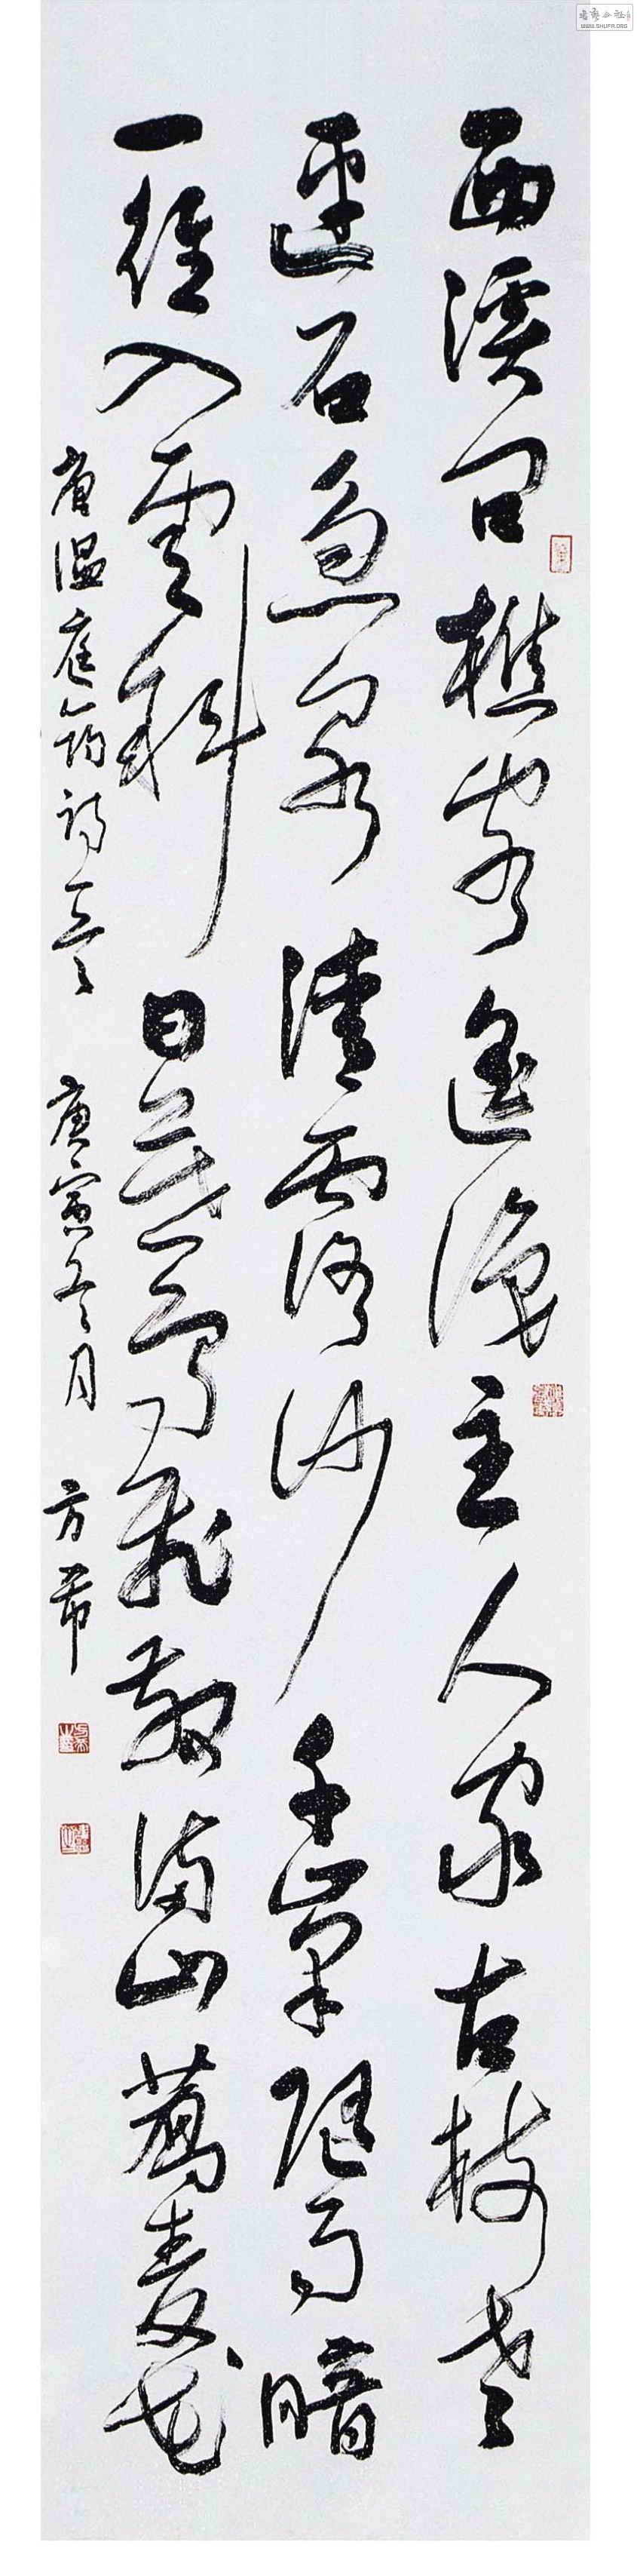 西溪問樵客遙識主人家古樹老
連石急泉清露沙千峯隨雨暗
一徑入雲斜日暮鳥飛散滿山蕎麥花
唐溫庭筠詩一首 庚寅冬月 方芾
WWW.SHUFA.ORG